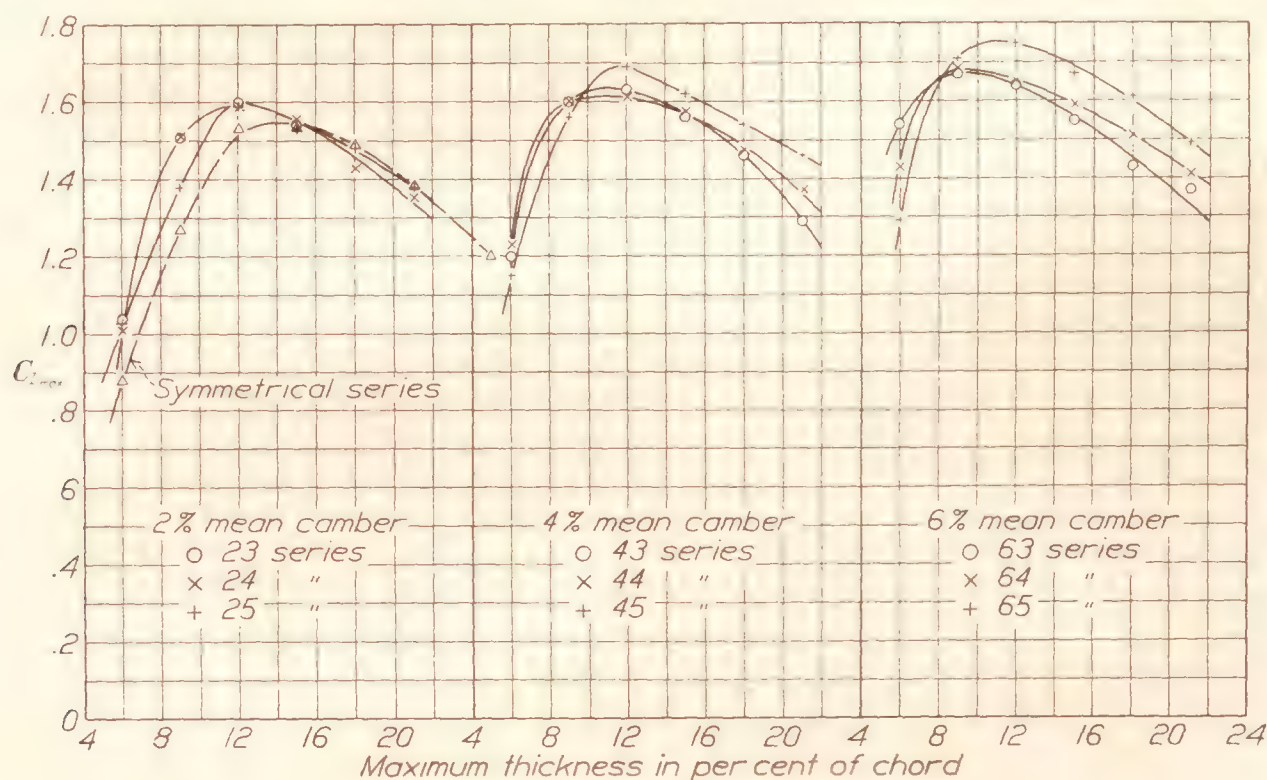 1.8
1.6
1.4
1.2
1.0
C
.8
.6
.4
.2
0
Symmetrical series
2% mean camber
○ 23 series
× 24 "
+ 25 "
4% mean camber
○ 43 series
× 44 "
+ 45 "
6% mean camber
○ 63 series
× 64 "
+ 65 "
4 8 12 16 20 4 8 12 16 20 4 8 12 16 20 24
Maximum thickness in per cent of chord